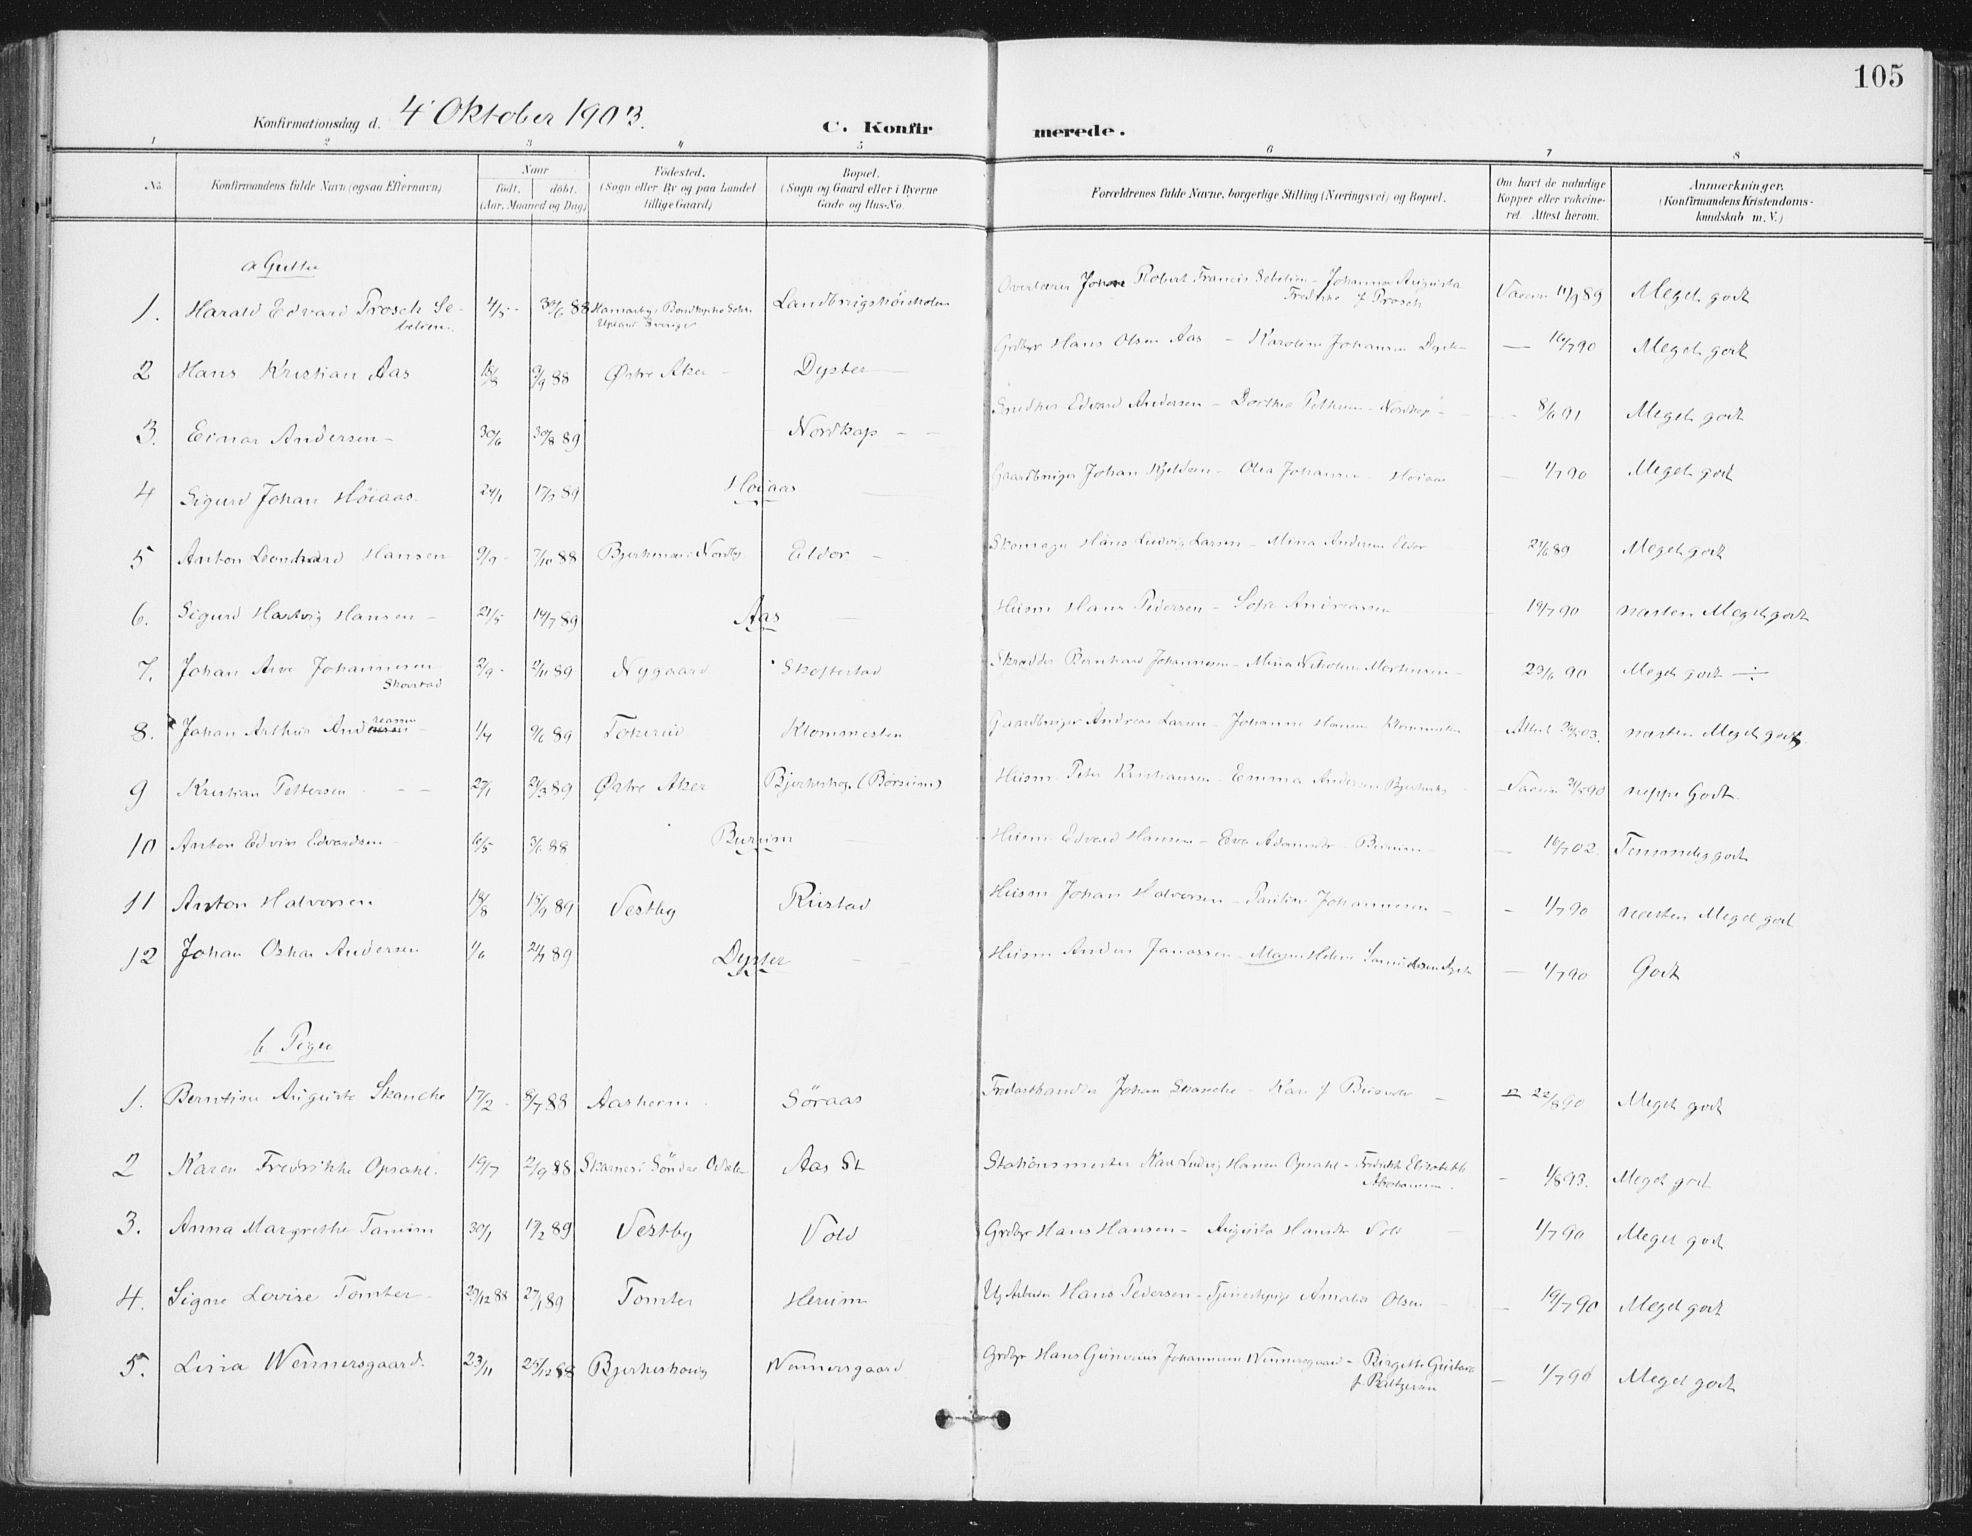 105
Konfirmationsdag d. 4 Oktober 1903.
C. Konfir merede.
1 2 3 4 5 6 7 8
No. Konfirmandens fulde Navn (ogsaa Efternavn)
Naar født. døbt. (Aar, Maaned og Dag)
Fødested. (Sogn eller By og paa Landet tillige Gaard)
Bopæl. (Sogn og Gaard eller i Byerne Gade og Hus-No.
Forældrenes fulde Navne, borgerlige Stilling (Næringsvei) og Bopæl.
Om havt de naturlige Kopper eller vakcineret. Attest herom.
Anmærkninger. (Konfirmandens Kristendomskundskab m. V.)
a Gutter
1. Harald Edvard Prosch Sebelien. 4/5 - 30/6 88 Landbrugshöiskolen Overlærer John Robert Francis Sebelien - Johanna Augusta Fredrike f Prosch Vaccin 11/9 89 Meget godt
2 Hans Kristian Aas 15/8 9/9 88 Østre Aker - Dyster Grdbr Hans Olsen Aas - Karoline Johansen Dyster - 16/7 90 Meget godt
3. Einar Andersen - 30/6 30/8 89 Nordkap - - Snedker Edvard Andersen - Dorthea Pettersen - Nordkap - 8/6 91 Meget godt
4 Sigurd Johan Höiaas. 24/1 17/3 89 Höiaas Gaardbruger Johan Kjeldsen - Olea Johansen - Höiaas - 1/7 90 Meget godt
5 Anton Leonhard Hansen 9/9 - 7/10 88 Eldor - Skomager Hans Ludvig Larsen - Mina Andersen Eldor 27/6 89 Meget godt
6. Sigurd Hartvig Hansen - 21/5 14/7 89 Aas Husm Hans Pedersen - Sofie Andreassen 19/7 90 næsten Meget godt
7. Johan Arve Johannesen Skovstad 2/9 - 2/11 89 Nygaard Skoftestad Skrædder Bernhard Johannesen - Mina Nicoline Mortensen - 23/6 90 Meget godt ÷
8. Johan Arthur Andreassen - 1/4 9/6 89 Tokerud Klommesten Gaardbruger Andreas Larsen - Johanne Hansen Klommesten Attest 03. næsten Meget godt
9 Kristian Pettersen - - 27/1 24/3 89 Østre Aker Bjerkehog (Börsum) Husm. Peter Kristiansen - Emma Andersen Bjerkehog - Vaccin 21/5 90 neppe Godt.
10 Anton Edvin Edvardsen - 16/5 3/6 88 Burum Husm Edvard Hansen - Eva Adamsdr - Burum - 16/7 02. Temmelig godt
11 Anton Halvorsen 18/8 15/9 89 Vestby Rustad Husm Johan Halvorsen - Pauline Johannesen - - 1/7 90 næsten Meget godt
12 Johan Oskar Andersen 1/6 21/7 89 Dyster Husm Anders Janassen - Helene Samuelsen Dyster - 1/7 90 Godt
b Piger
1. Berntine Auguste Skancke 17/2 - 8/7 88 Aasheim Söraas Johan Skancke - Karen f - 22/8 90 Meget godt
2 Karen Fredrikke Opsahl. 19/7 2/9 88 Skarnes i Söndre Odalen Aas St Stationsmester Karl Ludvig Hansen Opsahl - Fredrikke Elisabeth Abrahamsen. - 1/8 93. Meget godt
3. Anna Margrethe Tanum 30/1 17/2 89 Vestby Vold Grdbr Hans Hansen - Augusta Hansdr Vold - 1/7 90 Meget godt
4. Signe Lovise Tomter - 23/12 88 27/1 89 Tomter Herum Ug Arbeider Hans Pedersen - Tjenestepige Amalia Olsen - 19/7 90 Meget godt
5. Lina Wennersgaard. 23/11 25/12 88 Bjerkeskoug Wennersgaard Grdbr Hans Johannesen Wennersgaard - Birgitte Gustava f. Baltzersen - 1/7 90 Meget godt